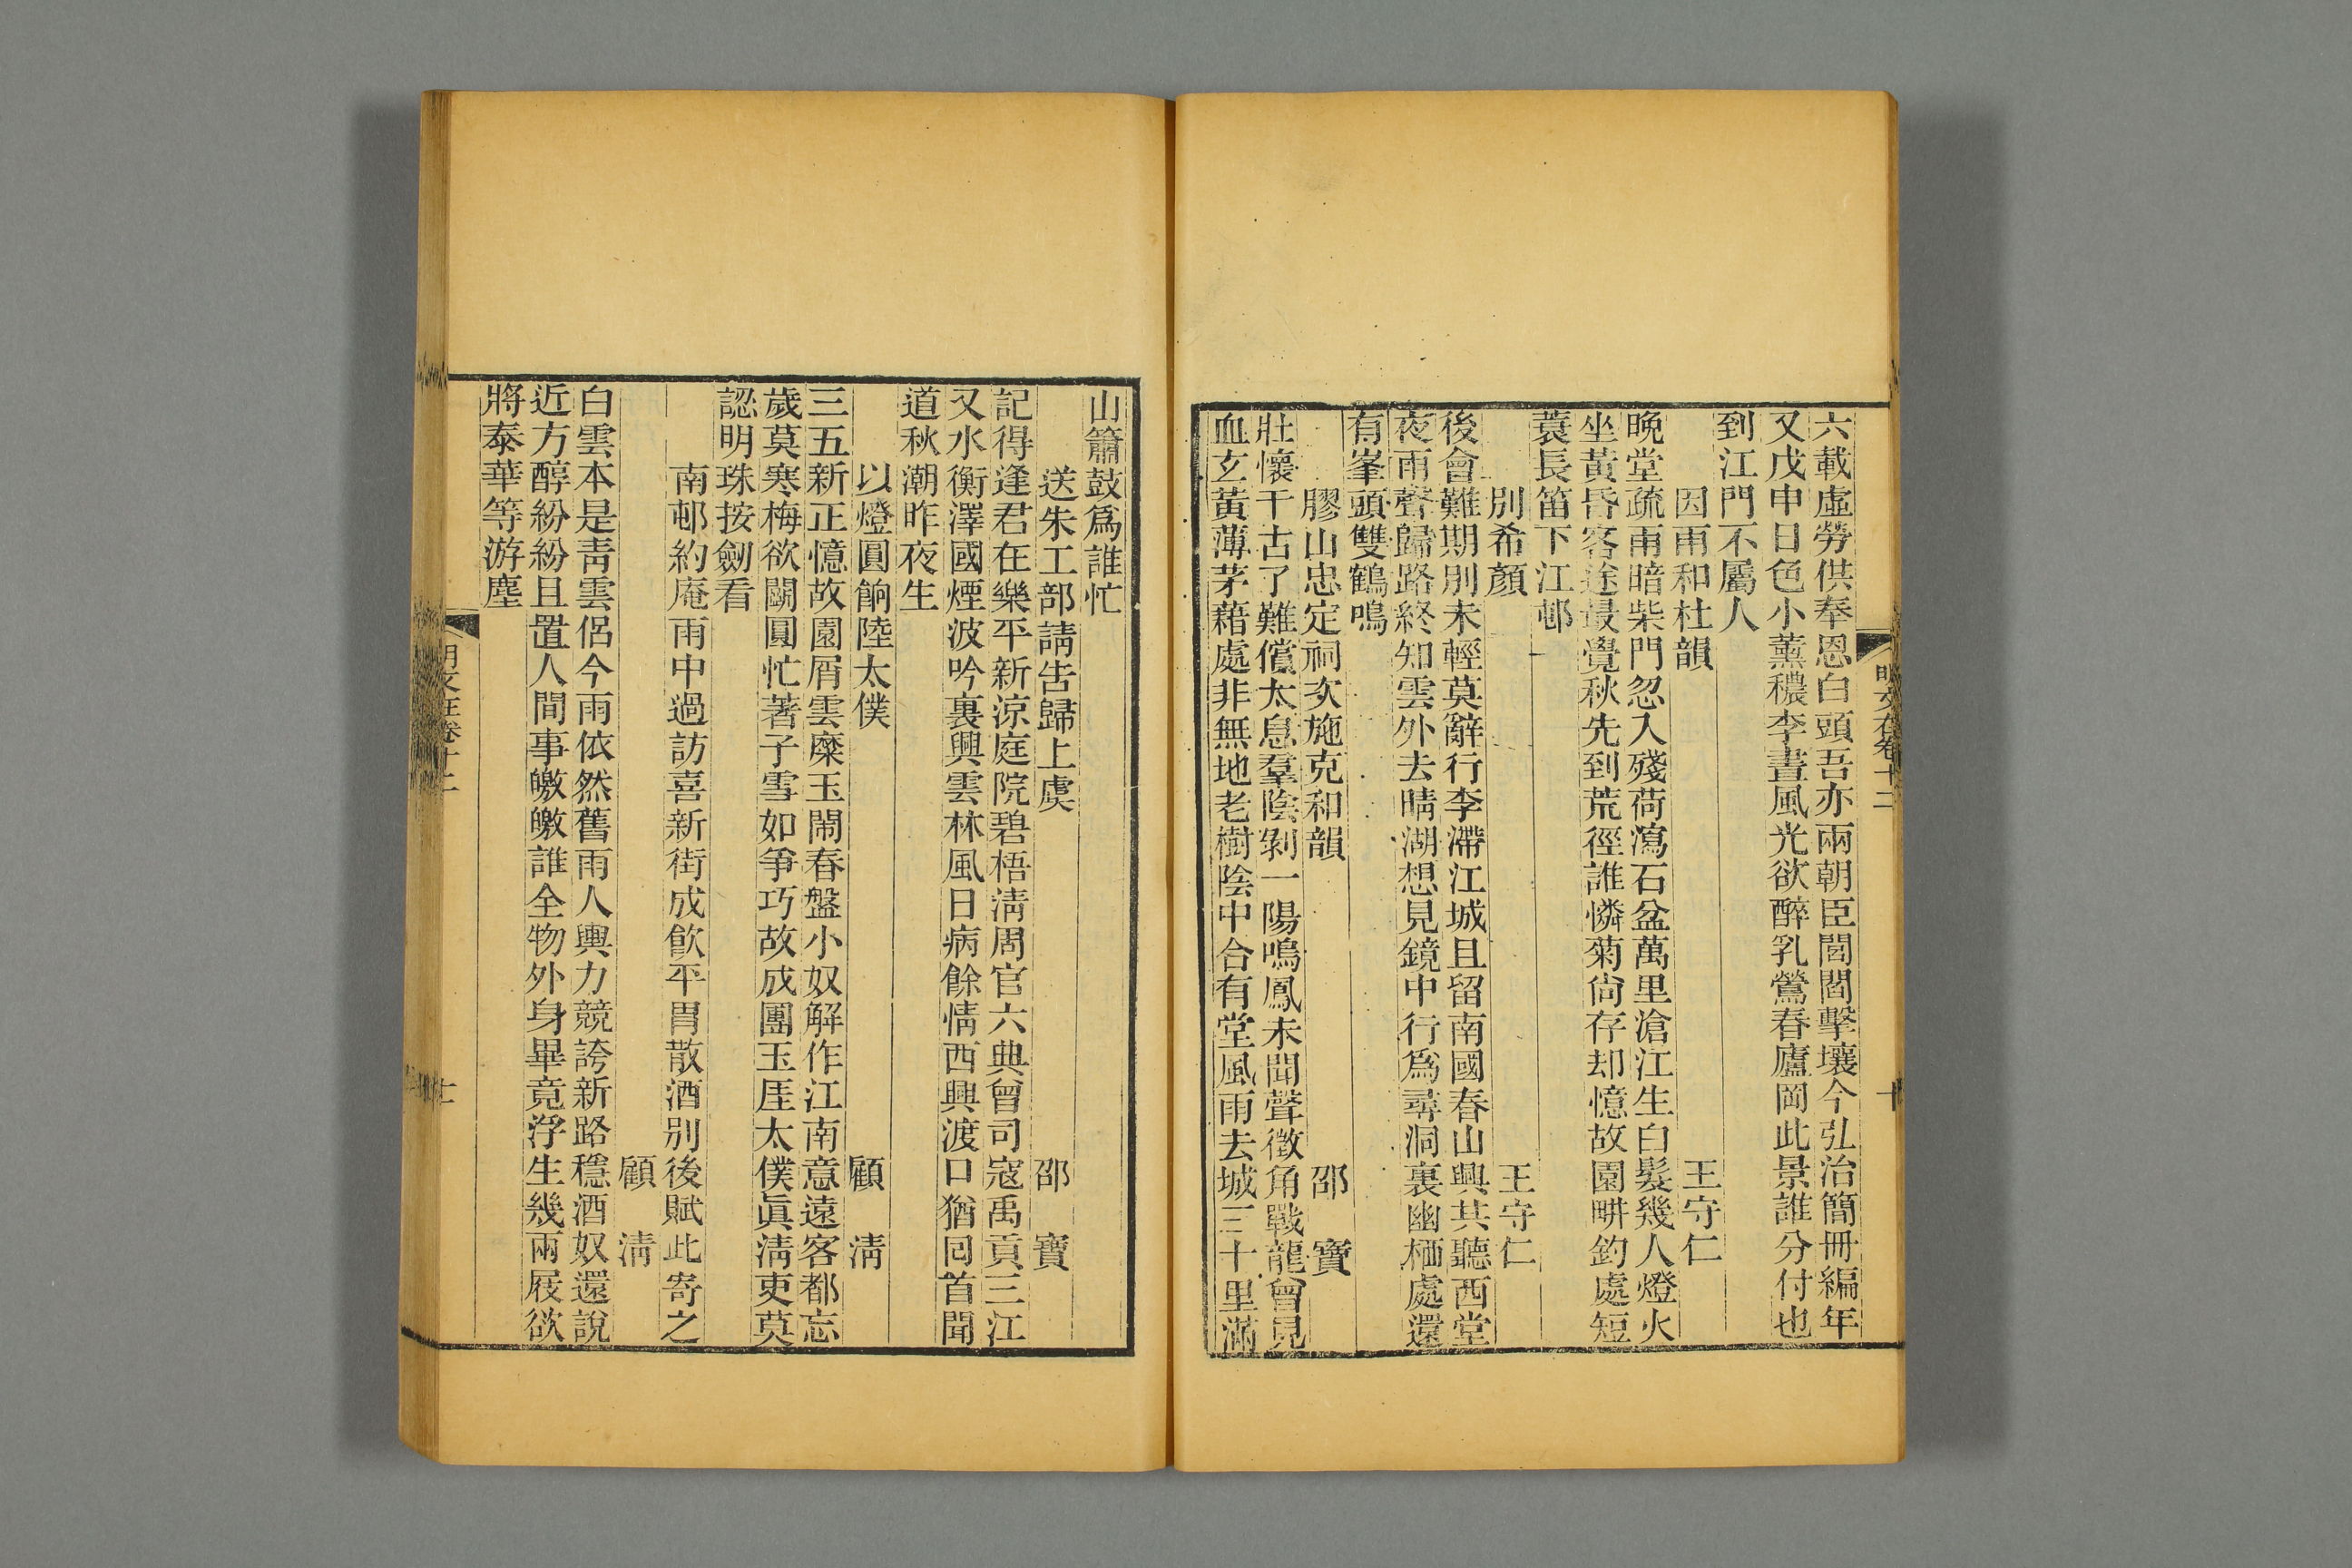 六載虛勞供奉恩白頭吾亦兩朝臣閭閻擊壤今弘治簡冊編年
又戊申日色小薰穠李晝風光欲醉乳鶯春廬岡此景誰分付也
到江門不屬人
因雨和杜韻 王守仁
晚堂疏雨暗柴門忽入殘荷瀉石盆萬里滄江生白髮幾人燈火
坐黃昏客途最覺秋先到荒徑誰憐菊尙存却憶故園畊釣處短
蓑長笛下江邨
別希顏 王守仁
後會難期別未輕莫辭行李滯江城且留南國春山興共聽西堂
夜雨聲歸路終知雲外去晴湖想見鏡中行爲尋洞裏幽栖處還
有峯頭雙鶴鳴
膠山忠定祠次施克和韻 邵寶
壯懷千古了難償太息羣陰剝一陽鳴鳳未聞聲徵角戰龍曾見
血玄黃薄茅藉處非無地老樹陰中合有堂風雨去城三十里滿
明文在卷十二 十
山簫鼓爲誰忙
送朱工部請告歸上虞 邵寶
記得逢君在樂平新涼庭院碧梧淸周官六典曾司寇禹貢三江
又水衡澤國煙波吟裏興雲林風日病餘情西興渡口猶囘首聞
道秋潮昨夜生
以燈圓餉陸太僕 顧淸
三五新正憶故園屑雲糜玉鬧春盤小奴解作江南意遠客都忘
歲莫寒梅欲鬭圓忙著子雪如爭巧故成團玉厓太僕眞淸吏莫
認明珠按劒看
南邨約庵雨中過訪喜新街成飮平胃散酒別後賦此寄之
顧淸
白雲本是靑雲侶今雨依然舊雨人輿力競誇新路穩酒奴還說
近方醇紛紛且置人間事皦皦誰全物外身畢竟浮生幾兩屐欲
將泰華等游塵
明文在卷十二